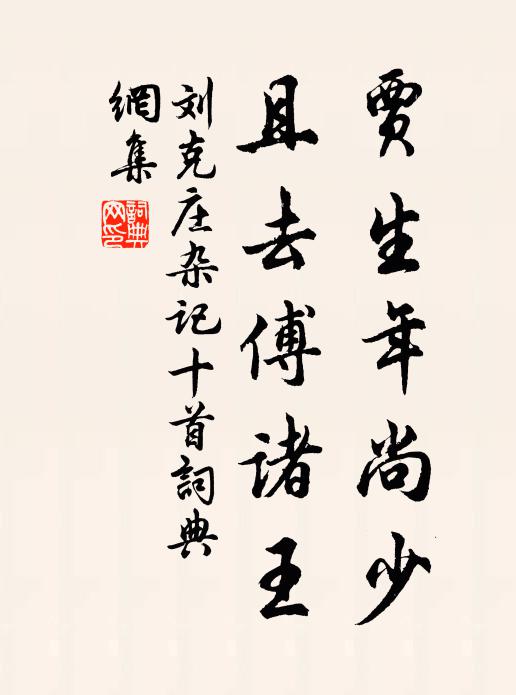 贾生年尚少
且去傅诸王
刘克庄杂记十首詞典
網集
詞典
网印